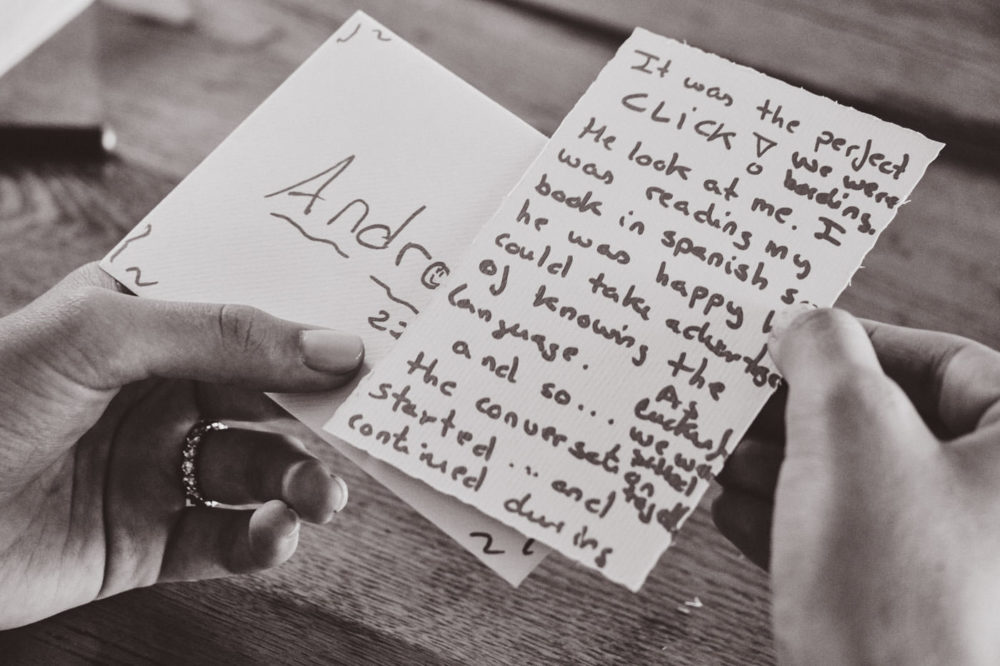 It was the perfect
CLICK! we were
bording.
He look at me. I
was reading my
book in spanish so
he was happy
could take advantage
of knowing the
language.
and so... As
the conversation
started... and
continued during
luckily
we were
Andre